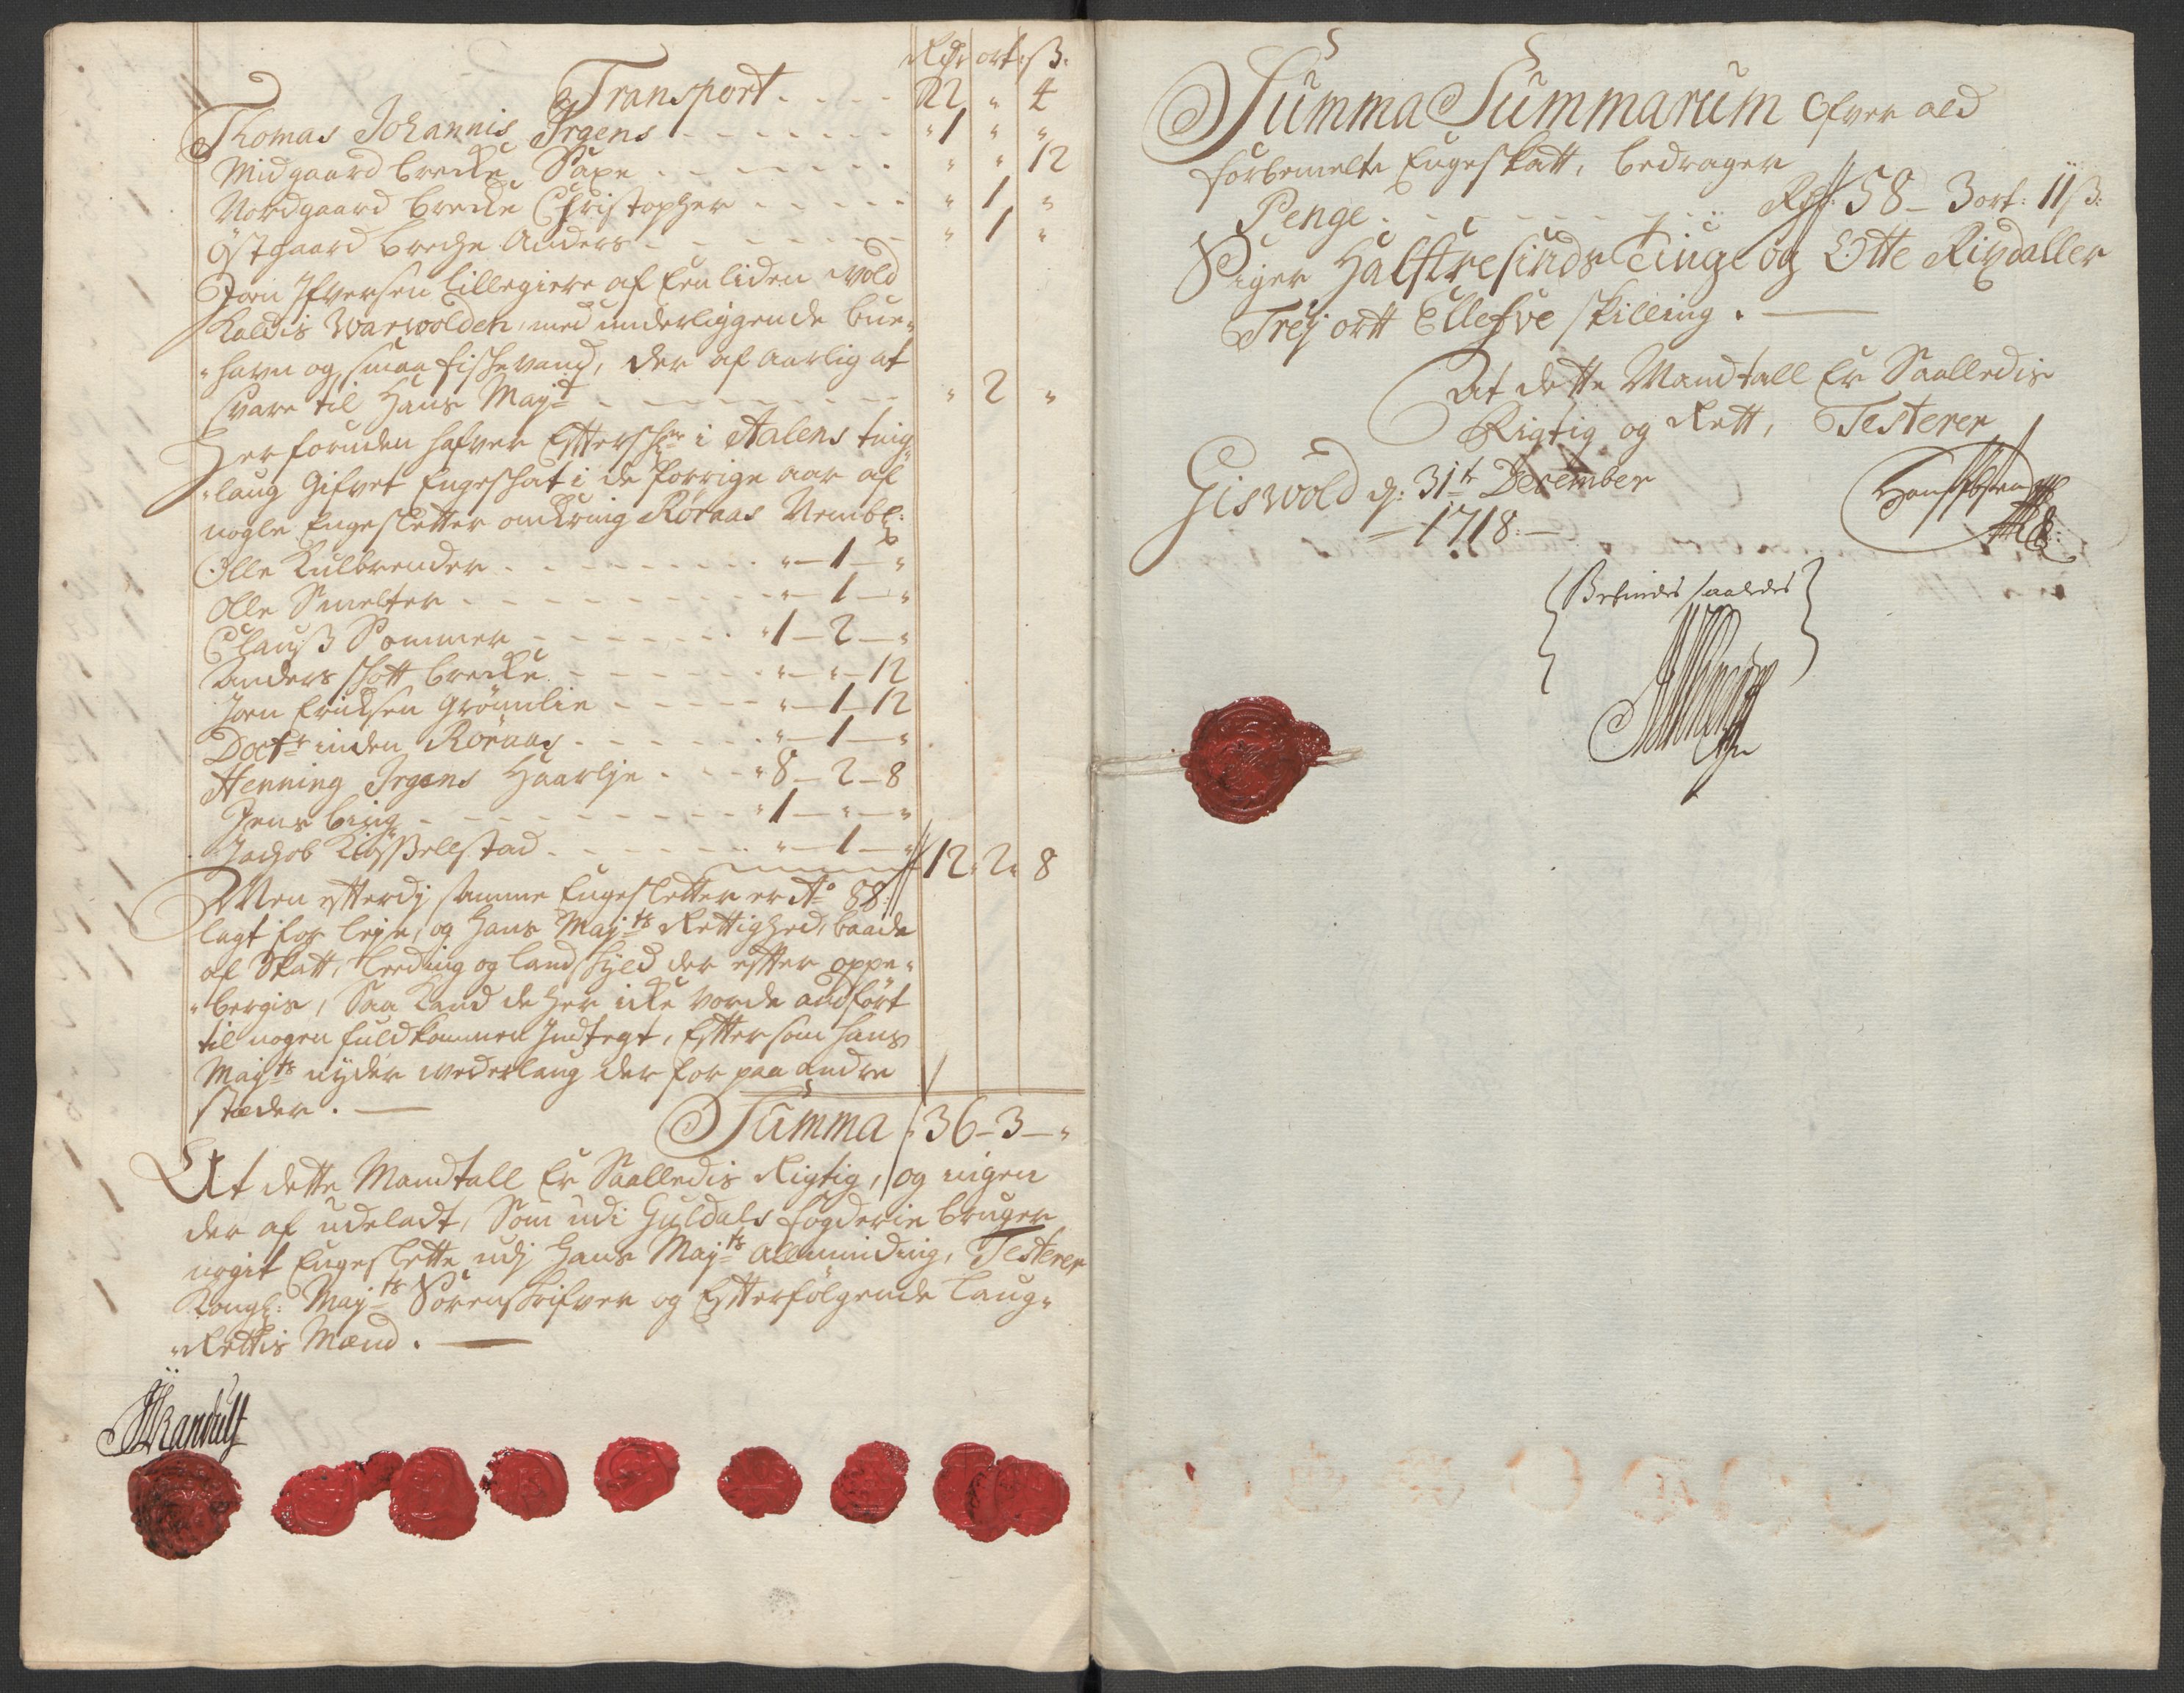 Rdr ort ß.
Transport . . . . 22 " 4
Thomas Johannis Irgens . . . . "1 " "
Midgaard brecke Saxe . . . . " " 12
Nordgaard brecke Christopher . . . . " 1 "
Östgaard breche Anders . . . . " 1 "
Joen Ifversen Lillegiere af Een liden vold
Kaldis Warvolden, med underliggende bue-
hafn og smaa fischevand, der af aarlig at
svare til Hans Mayt . . . . " 2 "
Her foruden hafver Effterschne i Aalens ting-
laug Gifvet Engeschat i de forrige aar af
nogle Engesletter omkring Røraas Nembl:
Olle Kulbrender . . . . "—1—"
Olle Smelter . . . . "—1—"
Clauß Sommer . . . . "1—2—"
Anders schott brecke . . . . "—"—12
Joen Erichsen Grömlie . . . . "—1—12
Doctr inden Röraas . . . . "—1—"
Henning Irgens Haarlje . . . . "8—2—8
Jens bing . . . . "1—"—"
Jachob Kißellstad . . . . "—1—"
12. 2. 8
Men efterdj samme Engesletter er Ao 88
lagt for leye, og Hans Mayts Rettighed, baade
af Skatt, Leeding og landskyld der effter oppe-
bergis, Saa Kand de her icke vorde andfört
til nogen fuldkommen Indtegt, Efftersom Hans
Mayts nyder wederlaug der for paa andre
stæder. —
Summa "36—3—"
At dette Mandtall Er Saalledis Rigtig, og ingen
der af udeladt, Som udi Guldals fogderie bruger
nogit Engeslette udj Hans Mayts Allminding, Testerer
Kongl: Mayts Sorenskrifver og Efterfölgende Laug-
Rettis Mænd. —
Summa Summarum Ofver ald
forbemelte Engeskatt, bedrager
Penge . . . . Rdr 58— 3 ort: 11 ß:
Siger Halftresinds Tiuge og Otte Rixdaller
Trej ortt Ellefve skilling. —
At dette Mandtall Er Saalledis
Rigtig og Rett, Testerer
Giswold d: 31te December
— 1718: —
Befindes saaledes